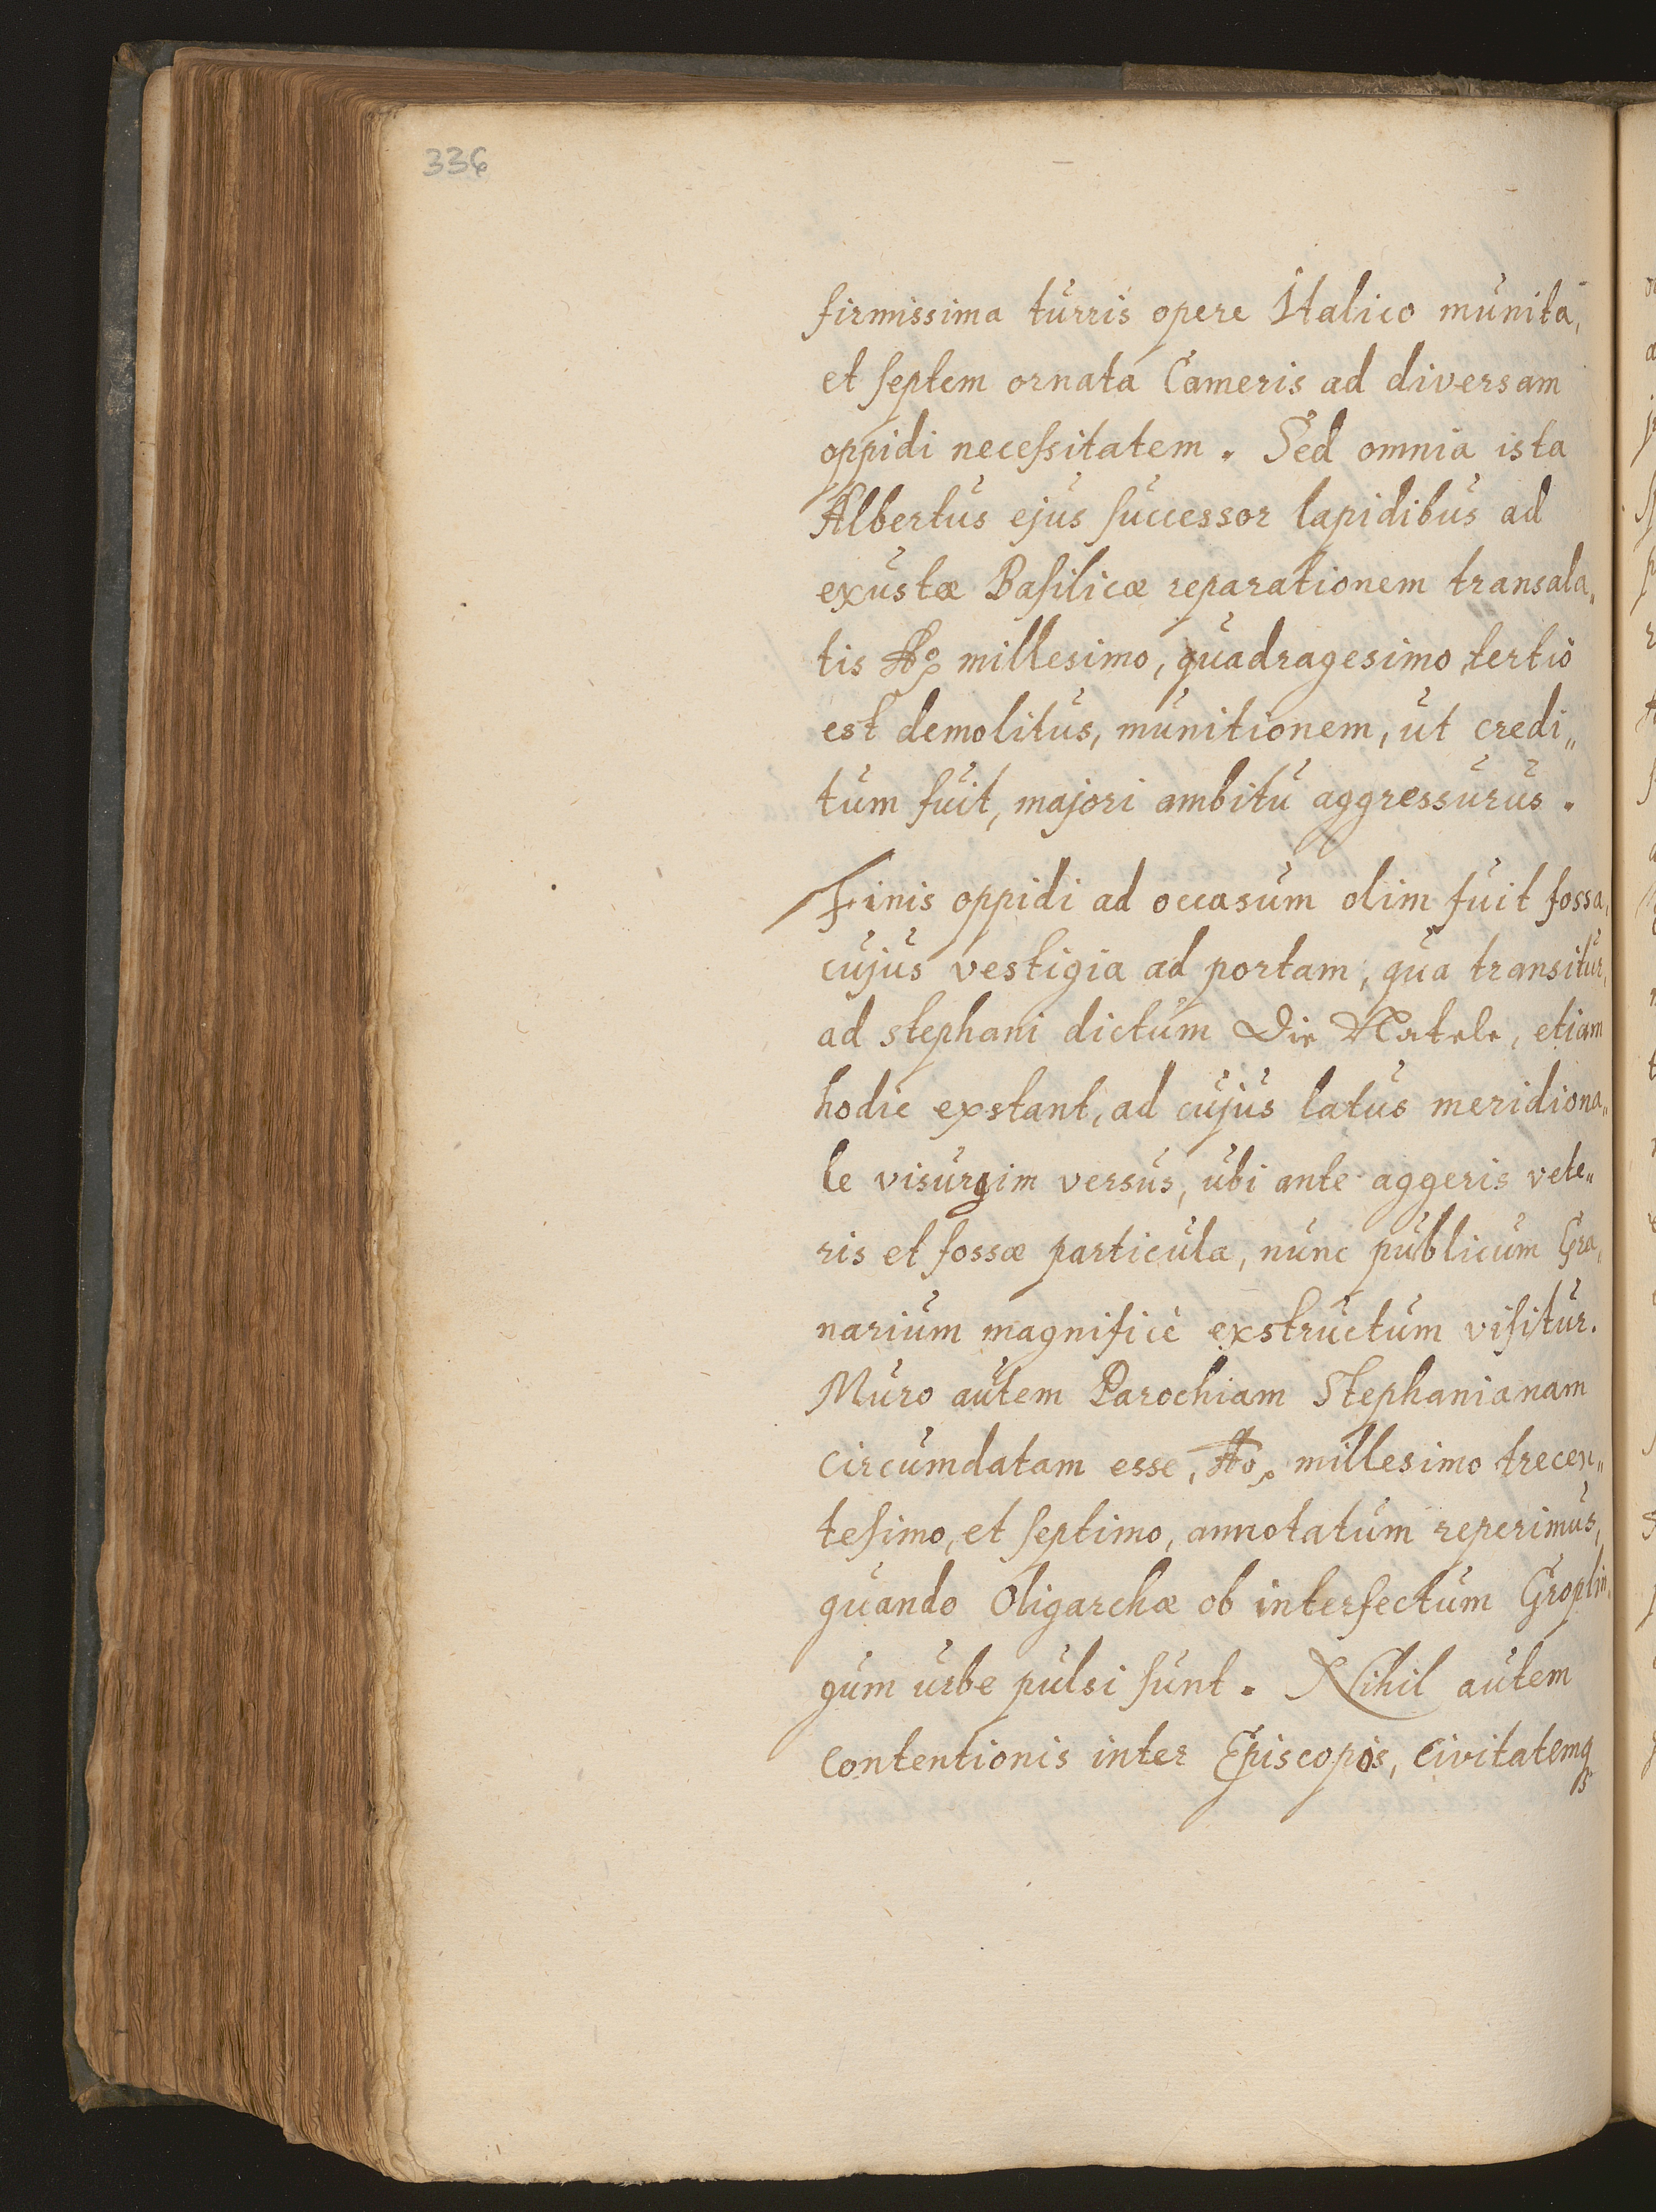 336
firmissima turris opere Italico munita,
et septem ornata Cameris ad diversam
oppidi necessitatem. Sed omnia ista
Albertus ejus successor lapidibus ad
exustæ Basilicæ reparationem transala„
tis Aō millesimo, quadragesimo tertio
est demolitus, munitionem, ut credi„
tum fuit, majori ambitu aggressurus.
Finis oppidi ad occasum olim fuit fossa,
cujus vestigia ad portam, qua transitur,
ad stephani dictum Die Natele, etiam
hodie exstant, ad cujus latus meridiona„
le visurgim versus, ubi ante aggeris vete„
ris et fossæ particula, nunc publicum Gra„
narium magnificè exstructum visitur.
Muro autem Parochiam Stephanianam
circumdatam esse, Aō millesimo trecen„
tesimo, et septimo, annotatum reperimus,
quando Oligarchæ ob interfectum Groplin„
gum urbe pulsi sunt. Nihil autem
contentionis inter Episcopos, Civitatemq